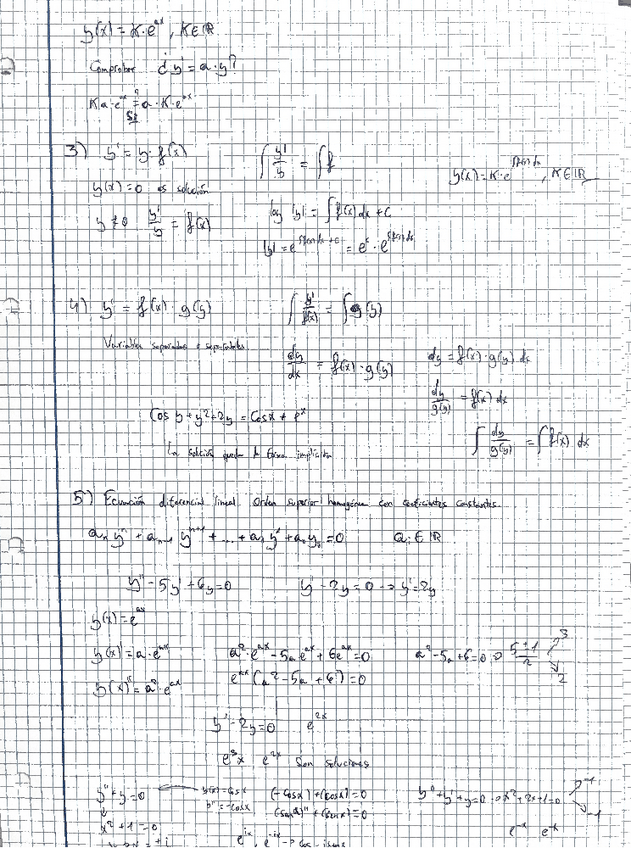 y(x) = K·e^{ax}, K∈ℝ
Comprobar ¿y' = a·y?
K a·e^{ax} ≟ a·K·e^{ax}
Sí
3) y' = y·f(x)
y(x) = 0 es solución
y ≠ 0 y'/y = f(x)
∫ y'/y = ∫ f
log |y| = ∫ f(x) dx + C
|y| = e^{∫f(x)dx + C} = e^c · e^{∫f(x)dx}
y(x) = K·e^{∫f(x)dx}, K∈ℝ
4) y' = f(x)·g(y)
Variables separadas o separables
∫ y'/f(x) = ∫ g(y)
dy/dx = f(x)·g(y)
dy = f(x)·g(y) dx
dy/g(y) = f(x) dx
∫ dy/g(y) = ∫ f(x) dx
Cos y + y² + 2y = Cos x + e^x
La solución queda de forma implícita
5) Ecuación diferencial lineal orden superior homogénea con coeficientes constantes
a_n y^n + a_{n-1} y^{n-1} + ... + a_1 y' + a_0 y = 0 a_i ∈ ℝ
y'' - 5y' + 6y = 0 y' - 2y = 0 → y' = 2y
y(x) = e^{ax}
y(x)' = a·e^{ax}
y(x)'' = a²·e^{ax}
a²·e^{ax} - 5a e^{ax} + 6e^{ax} = 0
e^{ax}(a² - 5a + 6) = 0
a² - 5a + 6 = 0 → (5±1)/2 3 2
y' - 2y = 0 e^{2x}
e^{3x} e^{2x} son soluciones
y'' + y = 0
y(x) = cos x
y'' = -cos x
(-cos x) + (cos x) = 0
(sen x)'' + (sen x) = 0
x² + 1 = 0
x² + 2x + 1 = 0 -1 -1
e^{ix}, e^{-ix}